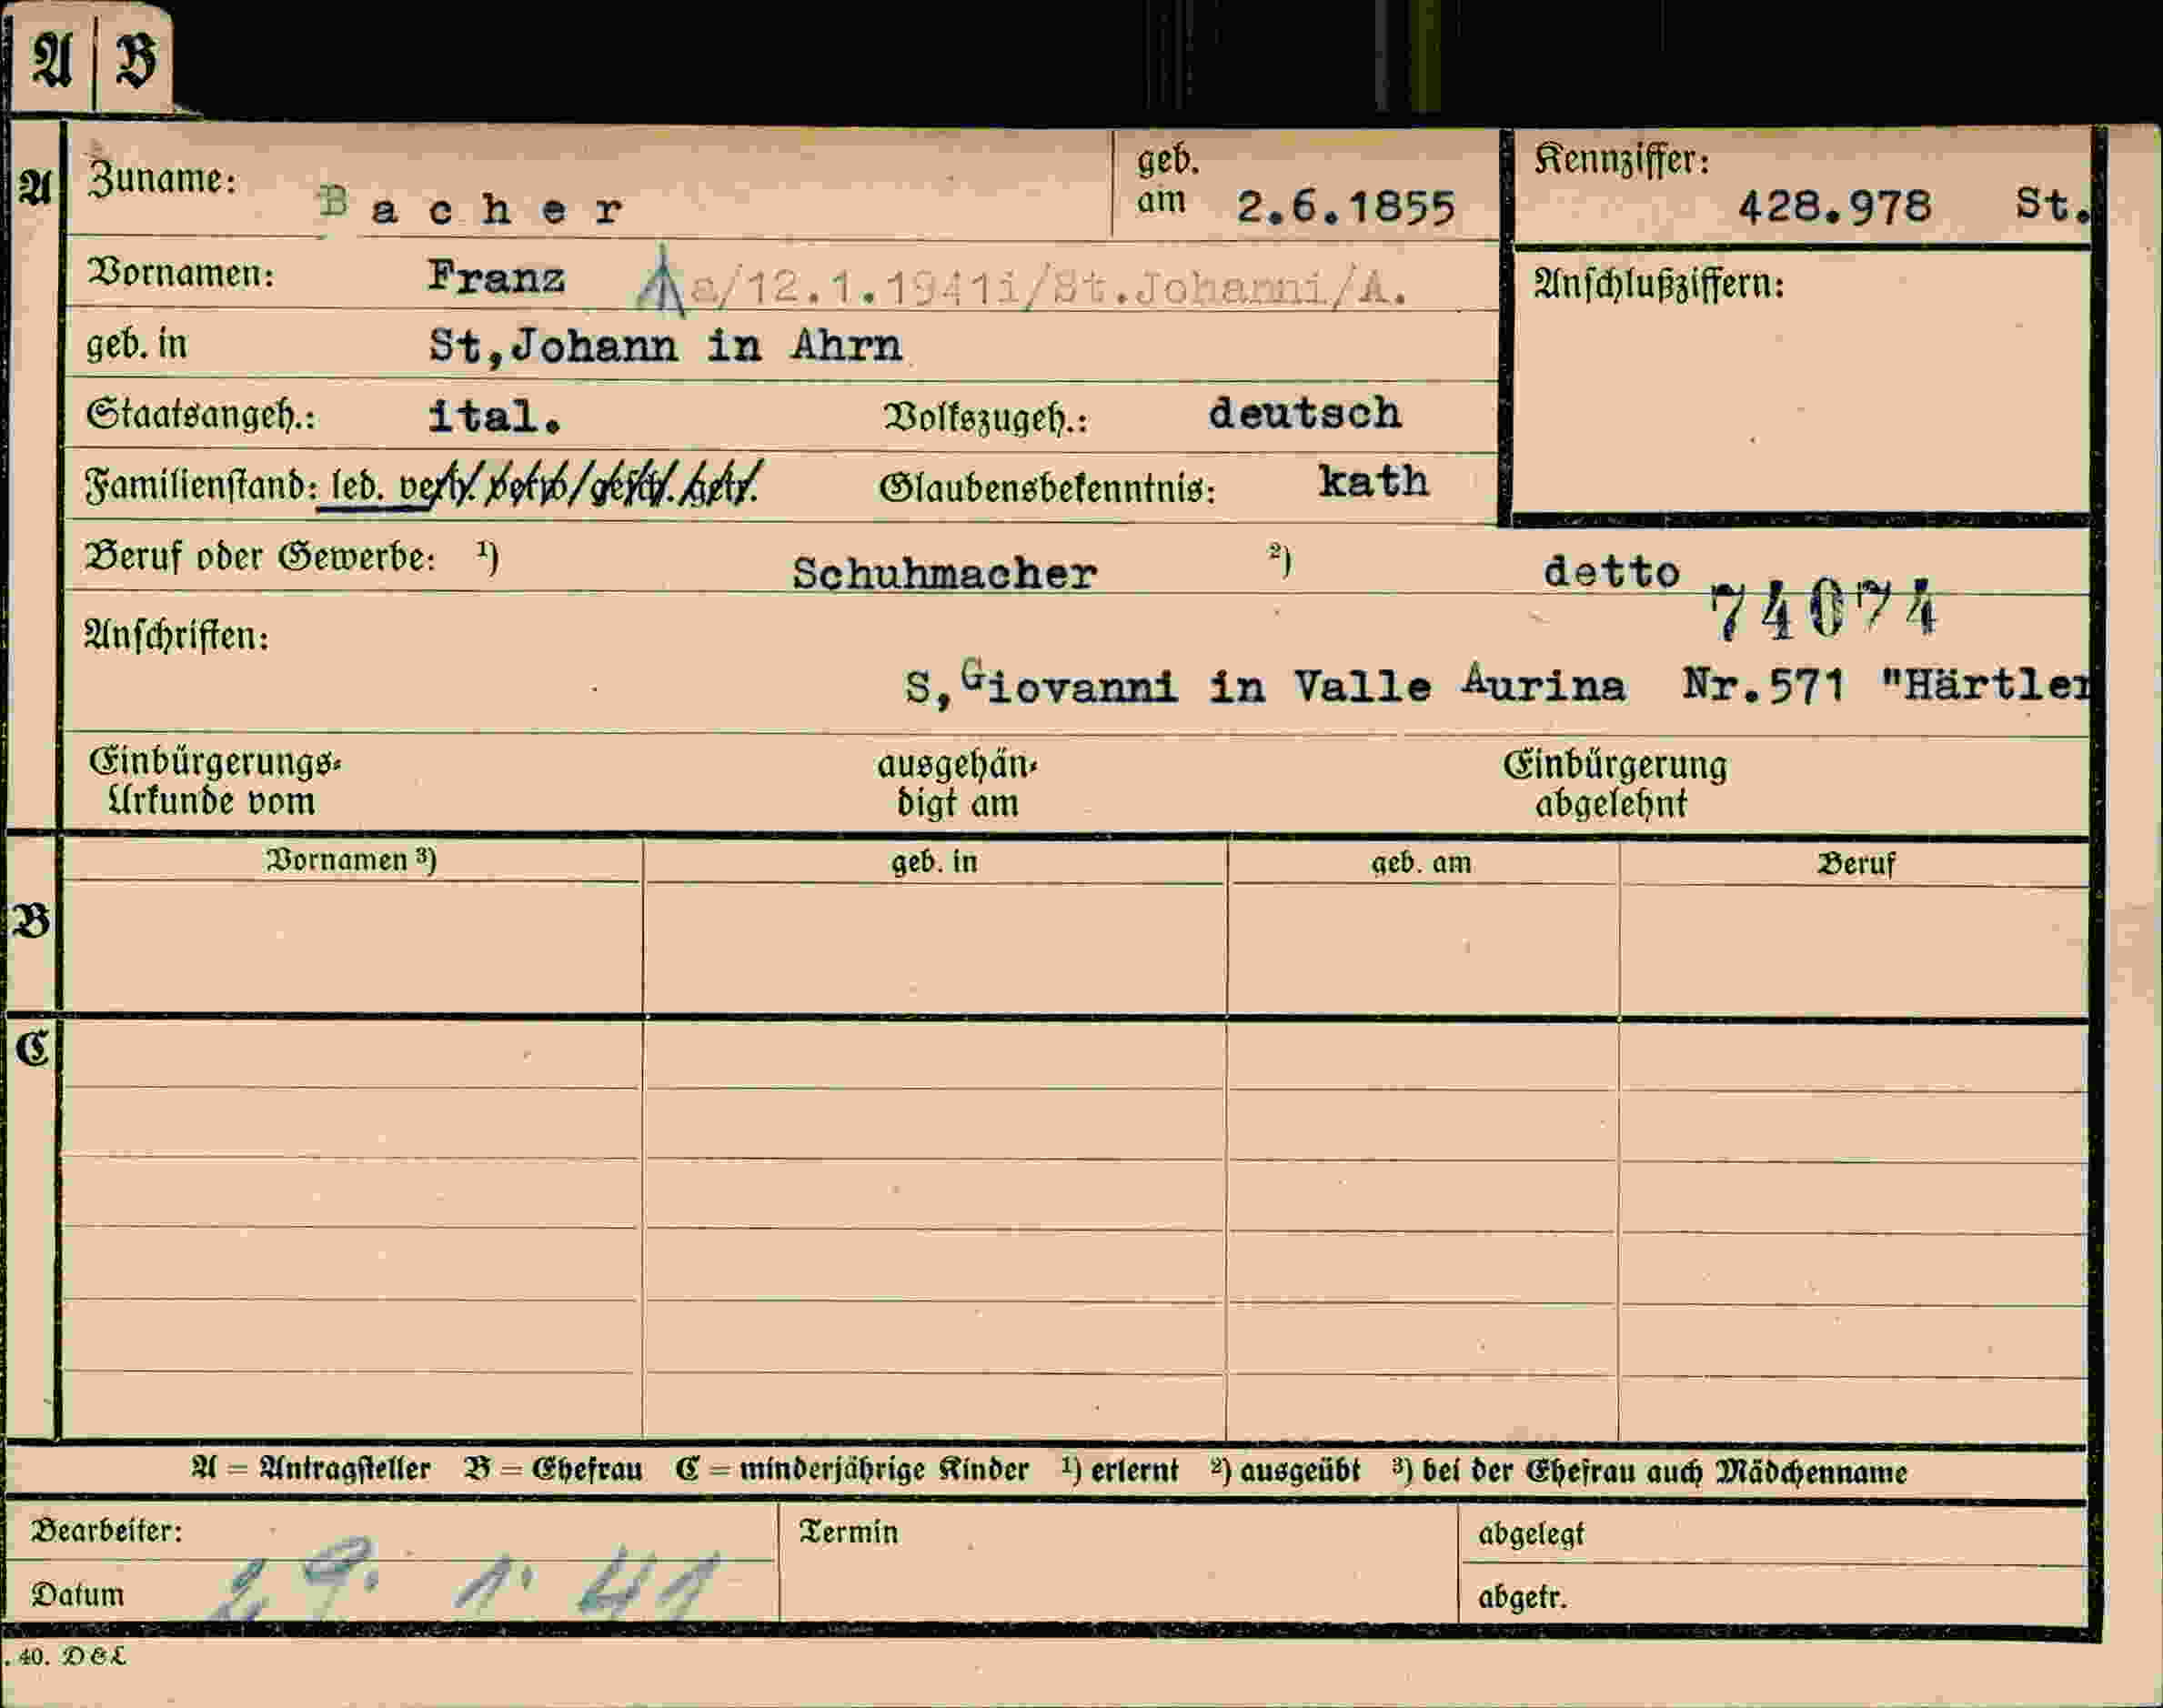 A B
A Zuname: Bacher geb. am 2.6.1855 Kennziffer: 428.978 St.
Vornamen: Franz a/12.1.1941i/St.Johanni/A. Anschlußziffern:
geb. in St,Johann in Ahrn
Staatsangeh.: ital. Volkszugeh.: deutsch
Familienstand: led. verh. verw. gesch. getr. Glaubensbekenntnis: kath
Beruf oder Gewerbe: ¹) Schuhmacher ²) detto
74074
Anschriften:
S,Giovanni in Valle Aurina Nr.571 "Härtler
Einbürgerungs- Urkunde vom ausgehän- digt am Einbürgerung abgelehnt
Vornamen ³) geb. in geb. am Beruf
B
C
A = Antragsteller B = Ehefrau C = minderjährige Kinder ¹) erlernt ²) ausgeübt ³) bei der Ehefrau auch Mädchenname
Bearbeiter: Termin abgelegt
Datum 29. 1. 41 abgetr.
. 40. D&L